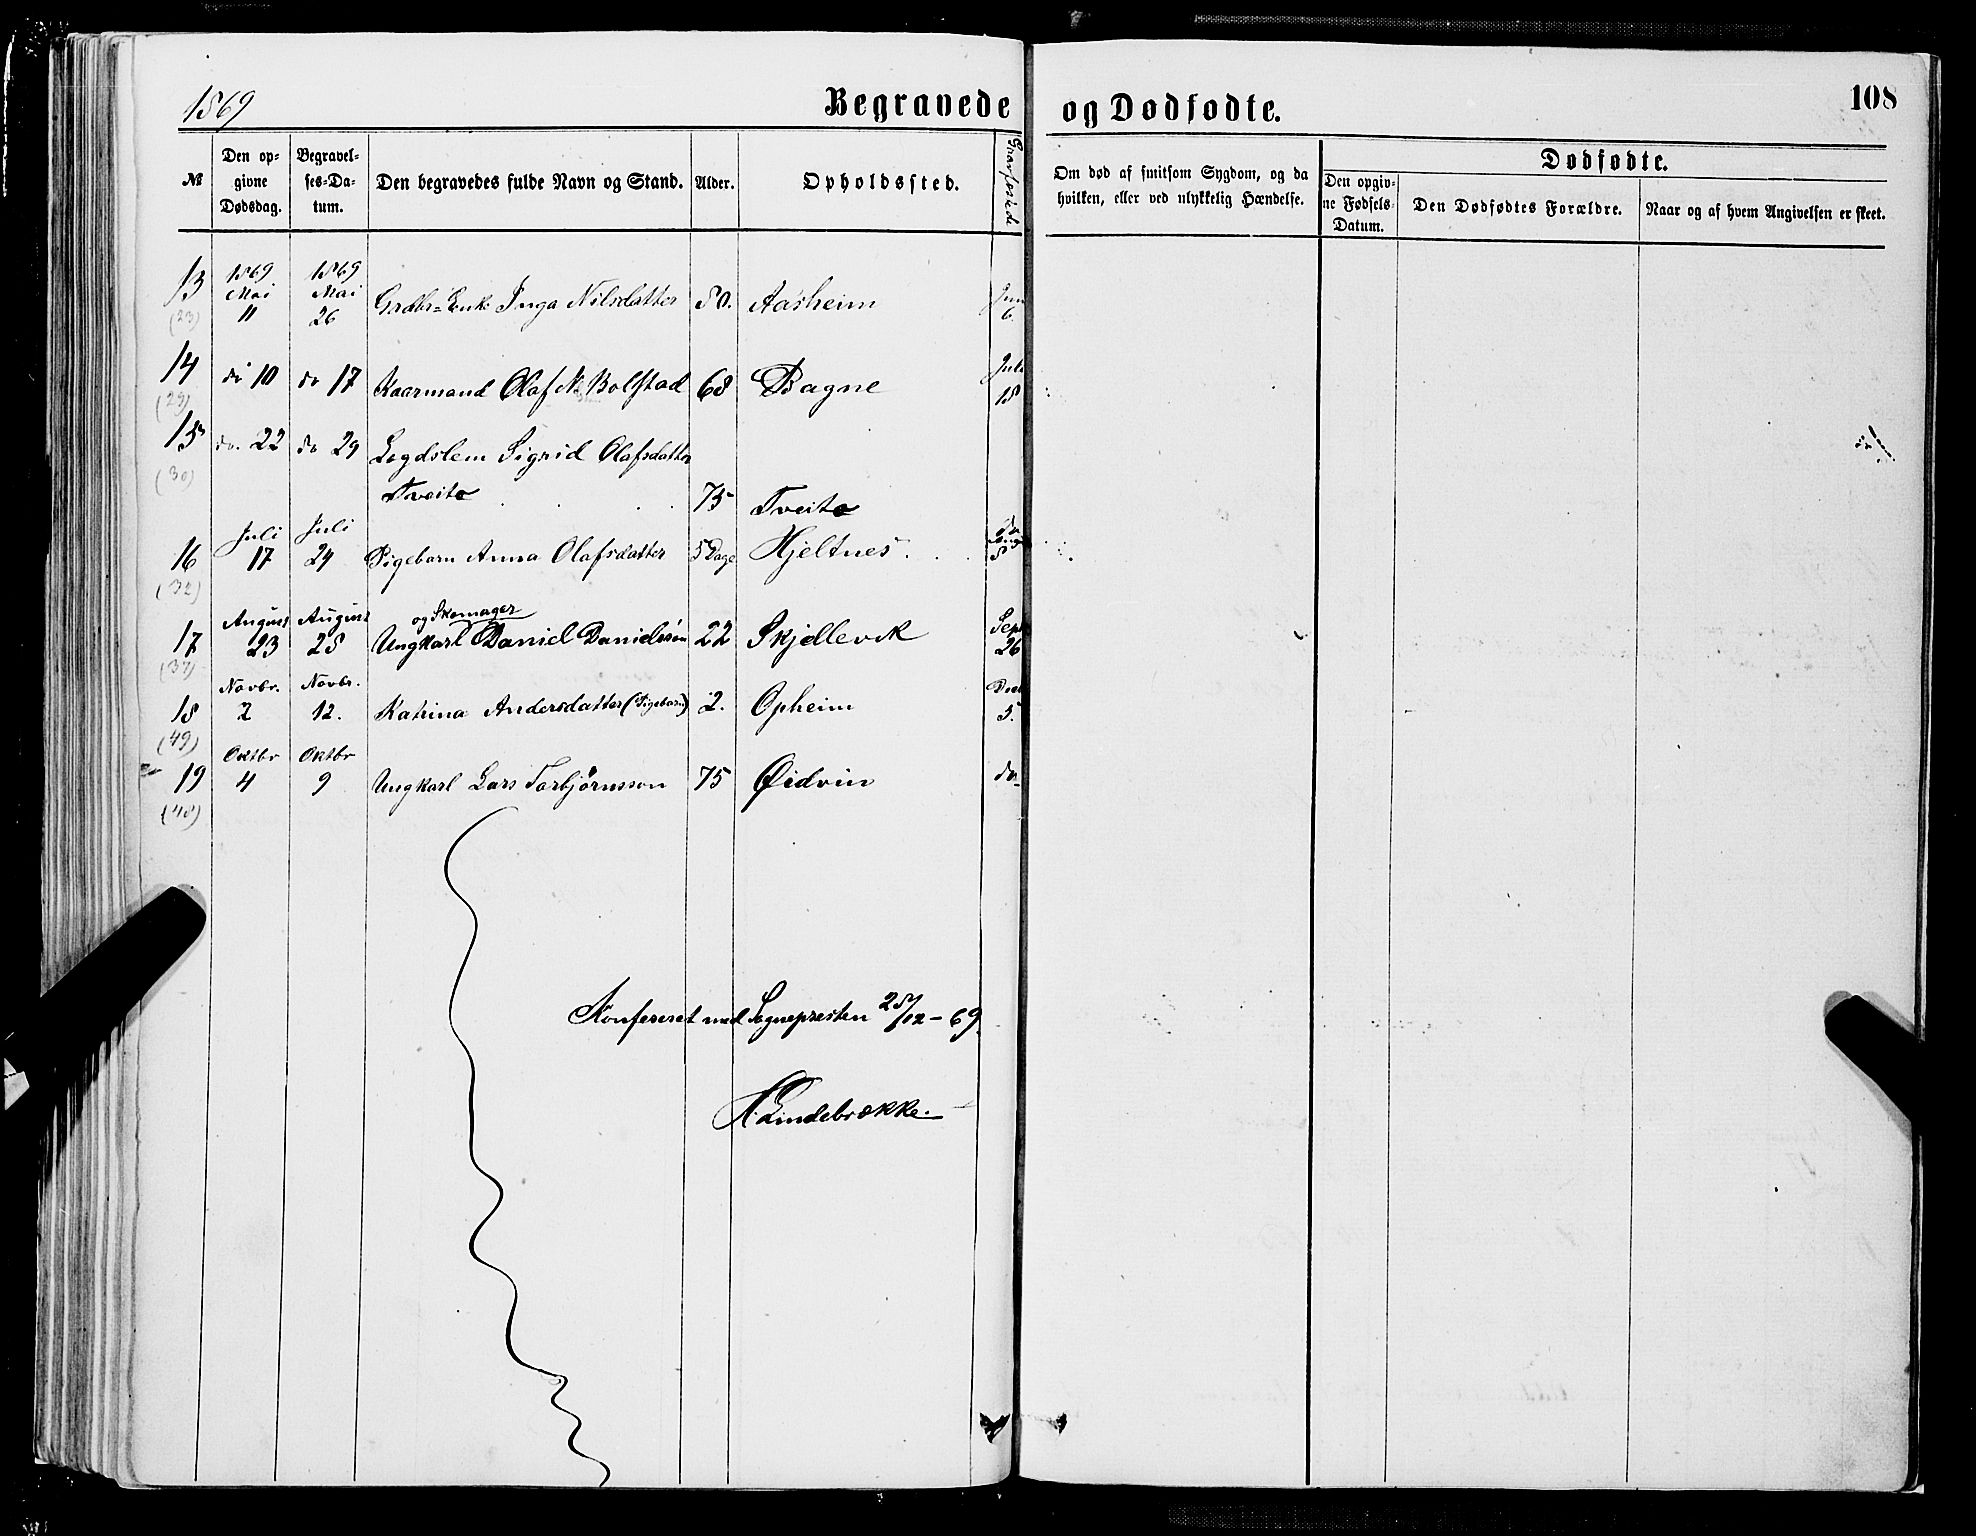 1869
Begravede og Dødfødte.
108
№
Den opgivne Dødsdag.
Begravelses-Datum.
Den begravedes fulde Navn og Stand.
Alder.
Opholdssted.
Om død af smitsom Sygdom, og da hvilken, eller ved ulykkelig Hændelse.
Dødfødte.
Den opgivne Fødsels-Datum.
Den Dødfødtes Forældre.
Naar og af hvem Angivelsen er skeet.
13 (23) 1869 Mai 11 1869 Mai 26 Grdbr=Enke Inga Nilsdatter 80. Aasheim 6.
14 (29) do 10 do 17 Kaarmand Olaf N. Bolstad 68 Bagne Juli 18
15 (30) do. 22 do 29 Lægdslem Sigrid Olafsdatter
Tveito 75 Tveito
16 (32) Juli 17 Juli 24 Pigebarn Anna Olafsdatter 5 Dage Hjeltnes. 8
17 (37) August 23 August 28 Ungkarl og Skomager Daniel Danielssøn 22 Skjellevik Sept 26
18 (49) Novbr. 2 Novbr. 12. Katrina Andersdatter (Pigebarn) 2. Opheim 5.
19 (48) Oktbr 4 Oktbr 9 Ungkarl Lars Torbjørnsson 75 Øidvin do
Konfereret med Sognepresten 28/12 - 69.
H. Lindebrække.